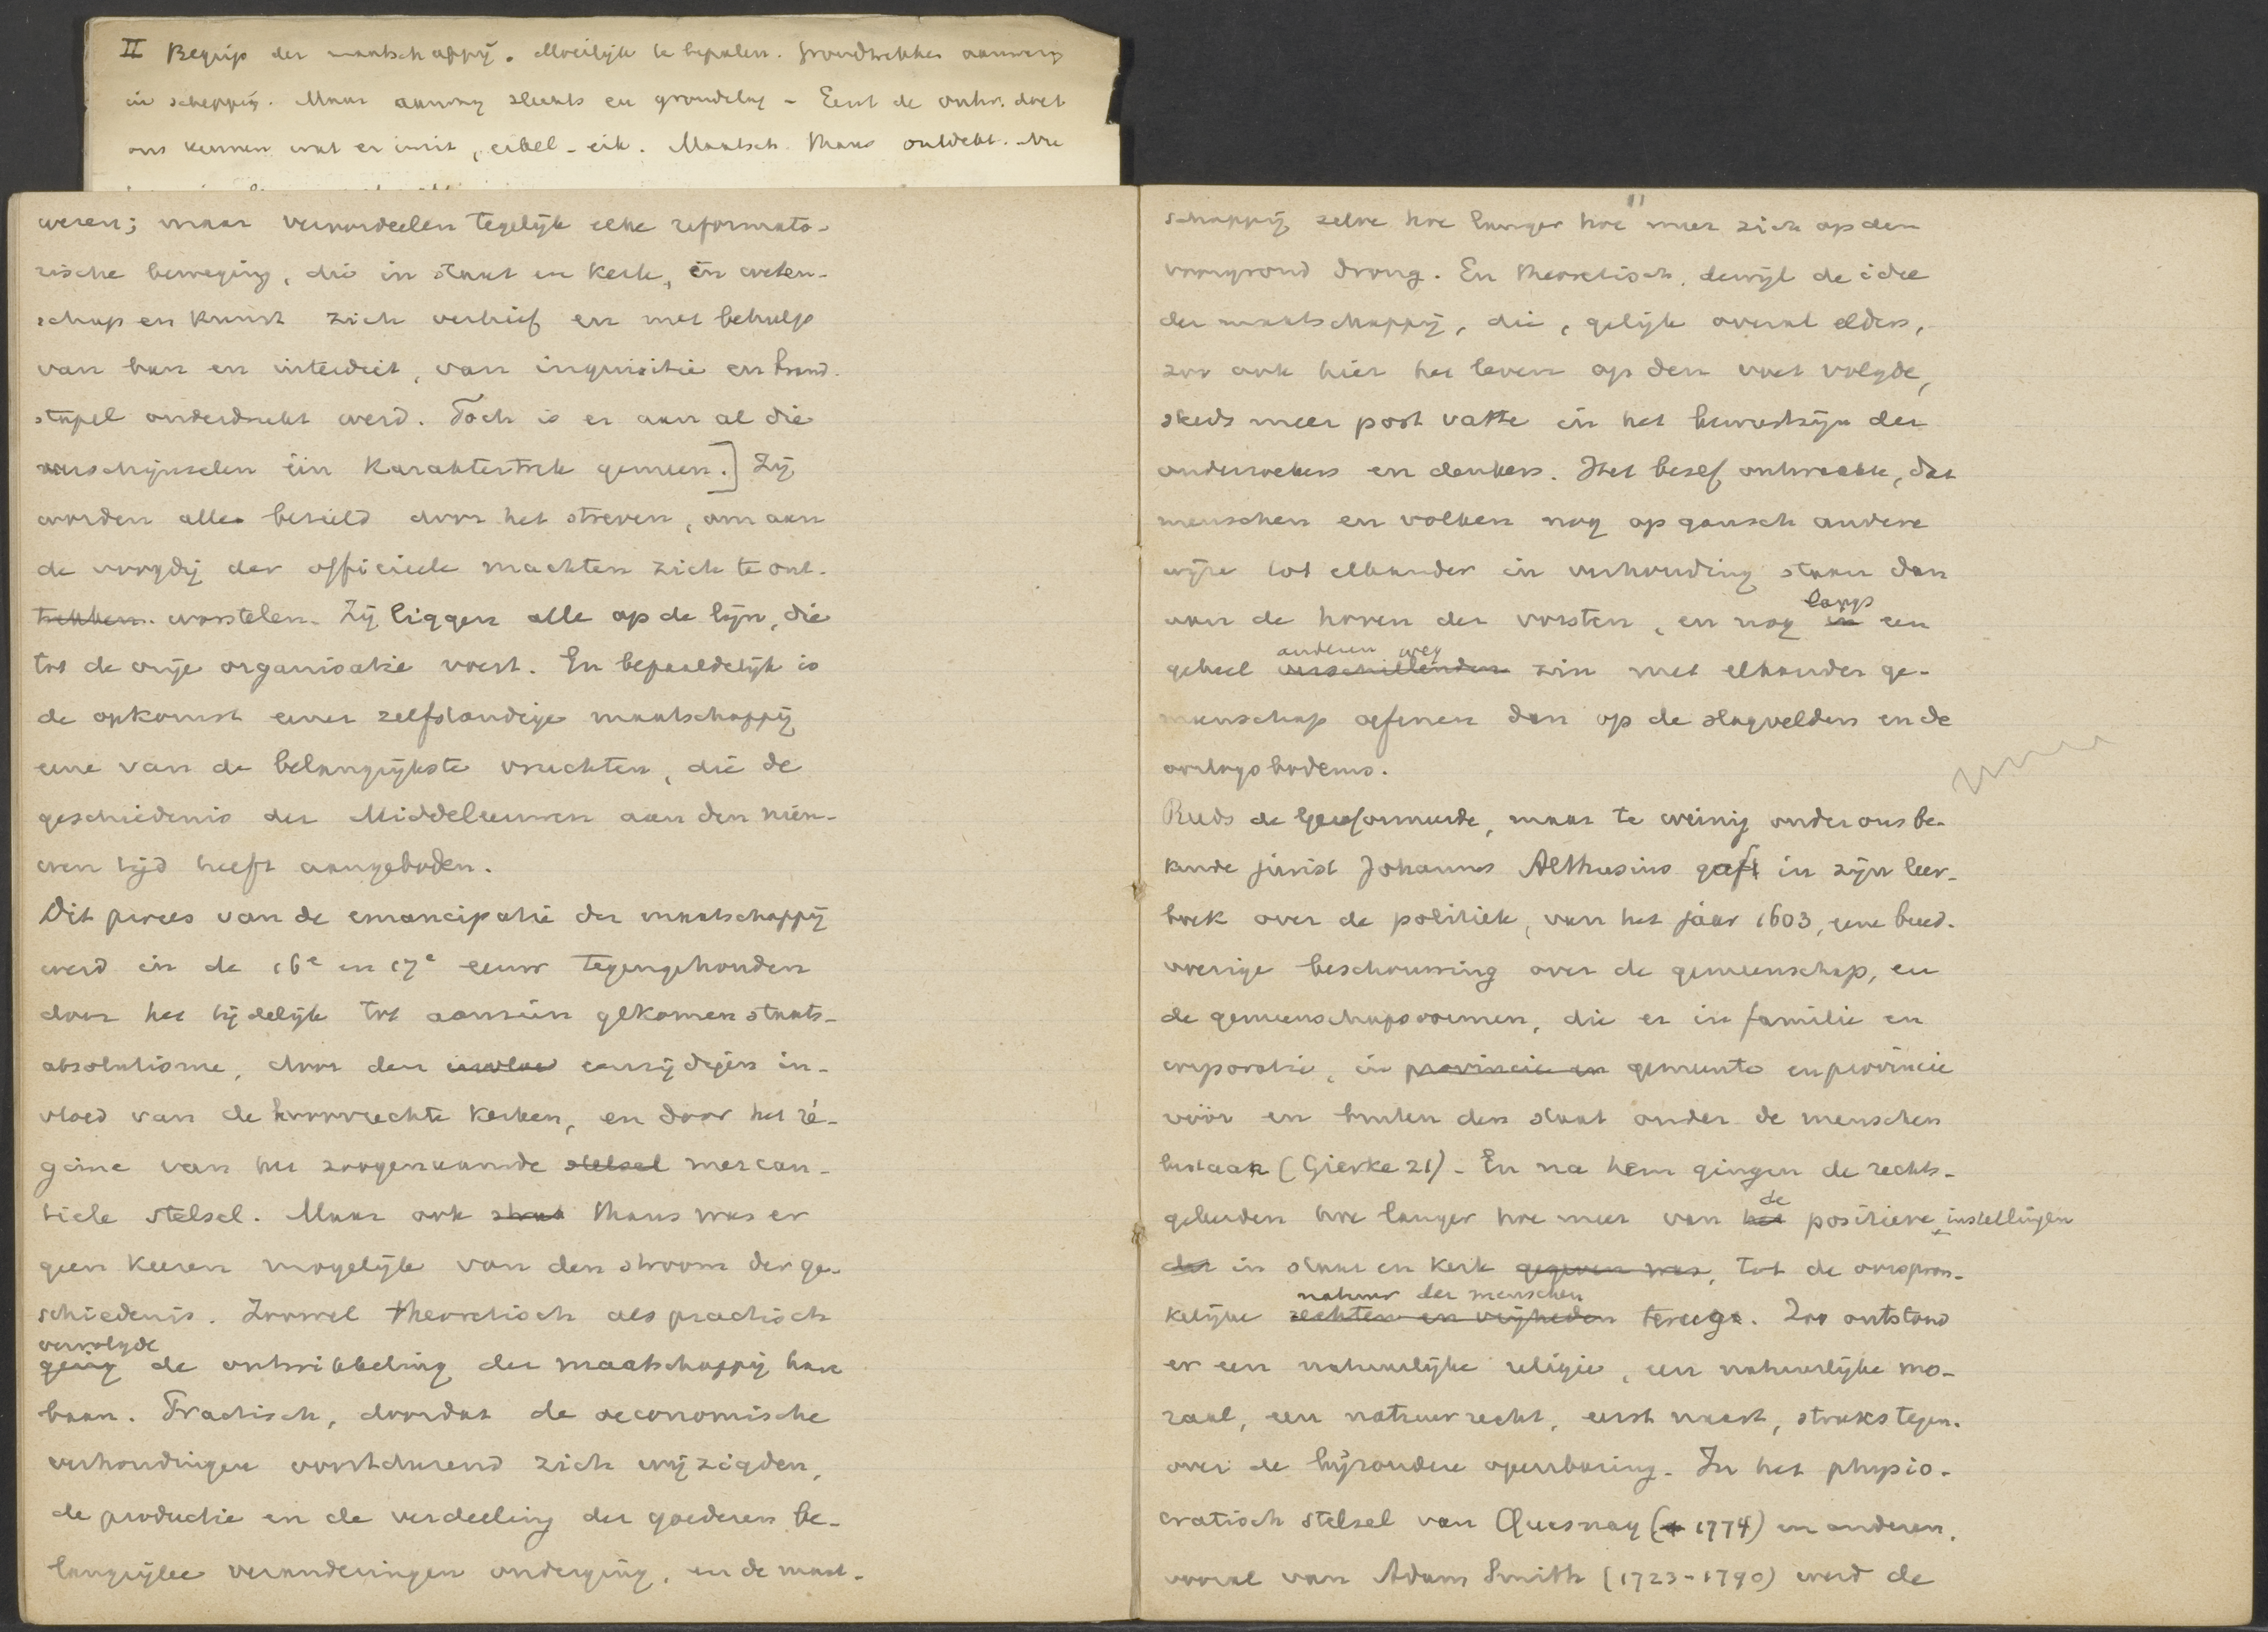 II Begrip der maatschappij. Moeilijk te bepalen. Grondtrekken aanwezig
in schepping. Maar aanleg slechts en grondslag - Eerst de ontw. doet
ons kennen wat er in zit, eikel - eik. Maatsch. thans ontdekt.
wezen; maar veroordeelen tegelijk elke reformato-
rische beweging, die in staat en kerk, in weten-
schap en kunst zich verhief en met behulp
van ban en interdict, van inquisitie en brand-
stapel onderdrukt werd. Toch is er aan al die
verschijnselen één karaktertrek gemeen.] Zij
worden alle bezield door het streven, om aan
de voogdij der officieele machten zich te ont-
trekken. worstelen. Zij liggen alle op de lijn, die
tot de vrije organisatie voert. En bepaaldelijk is
de opkomst eener zelfstandige maatschappij
eene van de belangrijkste vruchten, die de
geschiedenis der Middeleeuwen aan den nieu-
wen tijd heeft aangeboden.
Dit proces van de emancipatie der maatschappij
werd in de 16e en 17e eeuw tegengehouden
door het tijdelijk tot aanzien gekomen staats-
absolutisme, door den invloe eenzijdigen in-
vloed van de bevoorrechte kerken, en door het ré-
gime van het zoogenaamde stelsel mercan-
tiele stelsel. Maar ook straks thans was er
geen keeren mogelijk van den stroom der ge-
schiedenis. Zoowel theoretisch als practisch
vervolgde
ging de ontwikkeling der maatschappij haar
baan. Practisch, doordat de oeconomische
verhoudingen voortdurend zich wijzigden,
de productie en de verdeeling der goederen be-
langrijke veranderingen onderging, en de maat-
11
schappij zelve hoe langer hoe meer zich op den
voorgrond drong. En theoretisch, dewijl de idee
der maatschappij, die, gelijk overal elders,
zoo ook hier het leven op den voet volgde,
steeds meer post vatte in het bewustzijn der
onderzoekers en denkers. Het besef ontwaakte, dat
menschen en volken nog op gansch andere
wijze tot elkander in verhouding staan dan
langs
aan de hoven der vorsten, en nog in een
anderen weg
geheel verschillenden zin met elkander ge-
meenschap oefenen dan op de slagvelden en de
oorlogsbodems.
Reeds de Gereformeerde, maar te weinig onder ons be-
kende jurist Johannes Althusius gaf in zijn leer-
boek over de politiek, van het jaar 1603, eene breed-
voerige beschouwing over de gemeenschap, en
de gemeenschapsvormen, die er in familie en
corporatie, in provincie en gemeente en provincie
vóór en buiten den staat onder de menschen
bestaan (Gierke 21) - En na hem gingen de rechts-
de
geleerden hoe langer hoe meer van het positieve, instellingen
dat in staat en kerk gegeven was, tot de oorspron-
natuur der menschen
kelijke rechten en vrijheden terug. Zoo ontstond
er een natuurlijke religie, een natuurlijke mo-
raal, een natuurrecht, eerst naast, straks tegen-
over de bijzondere openbaring. In het physio-
cratisch stelsel van Quesnay († 1774) en anderen,
vooral van Adam Smith (1723-1790) werd de